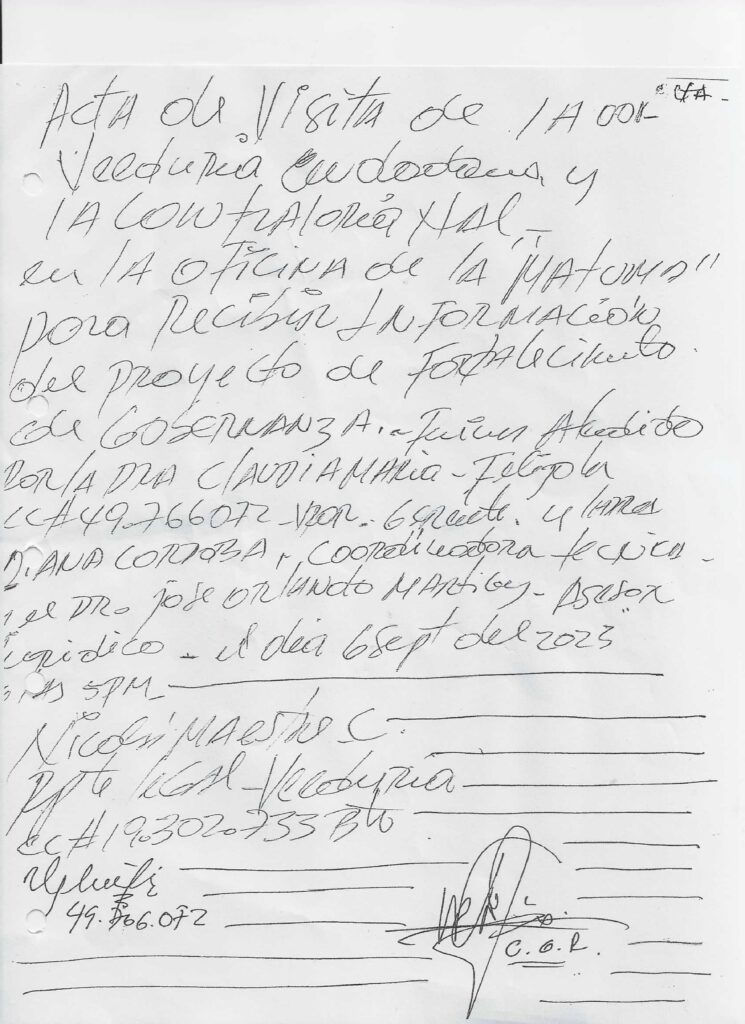 Acta de Visita de la 001-
Veeduria Ciudadana y
LA CONTRALORIA
en LA OFICINA de LA "MATUNA"
para Recibir INFORMACIÓN
del proyecto de Fortalecimiento.
de GOBERNANZA. - Fuimos Atendido
POR LA DRA CLAUDIA MARIA -
CC# 49.766072 - Gerente. y
DIANA CORDOBA, Coordinadora tecnica -
y el DR. JOSE ORLANDO - ASESOR
juridico - el dia 6 Sept del 2023
5PM
Nicolas MAESTRE C.
Rpte LEGAL - Veeduria
CC# 19.302.733 Bto
49.706.072
C.G.R.